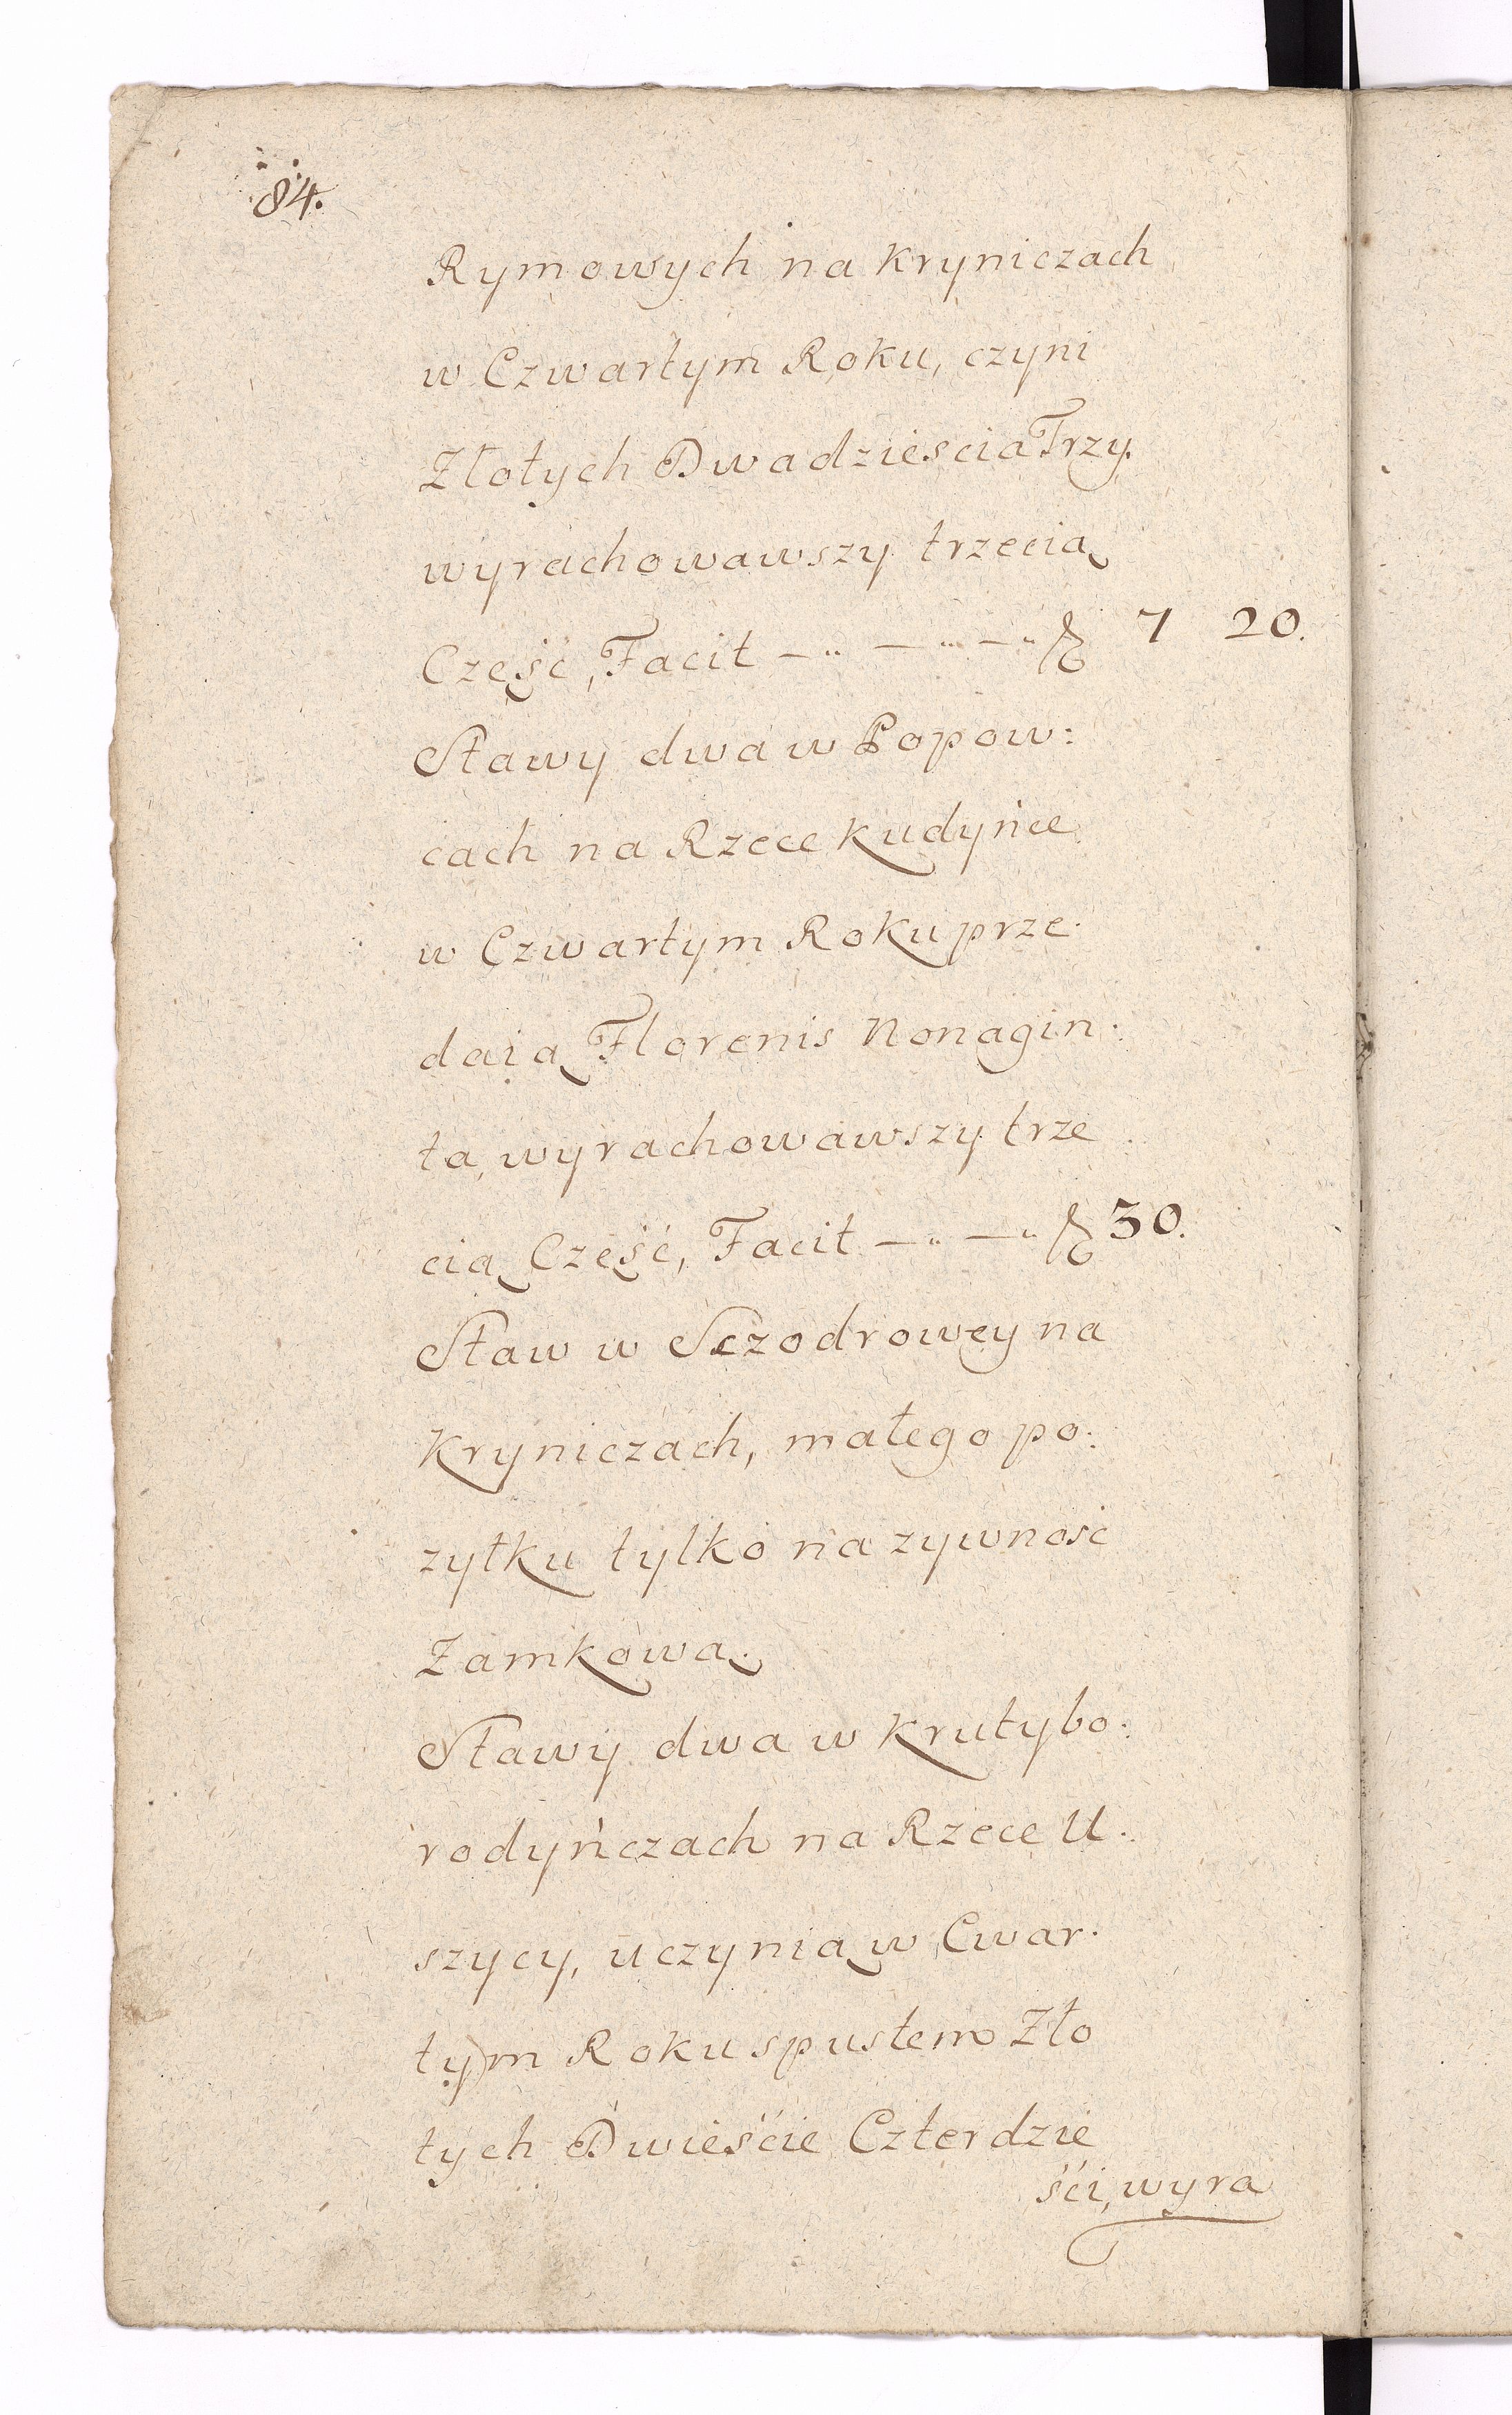 84.
Rymowych na Kryniczach
w Czwartym Roku, czyni
Złotych Dwadziescia Trzy.
wyrachowawszy trzecią
Część, Facit — .. — ... — .. 7 20.
Stawy dwa w Popow:
cach na Rzece Kudyńce
w Czwartym Roku prze.
daią Florenis Nonagin.
ta, wyrachowawszy trze
cią Część, Facit — .. — .. 30.
Staw w Sczodrowey na
Kryniczach, małego po:
zytku tylko na zywnosc
Zamkową.
Stawy dwa w Krutybo:
rodyńczach na Rzece U.
szycy, uczynią w Cwar.
tym Roku spustem Zło
tych Dwieście Czterdzie
ści, wyra